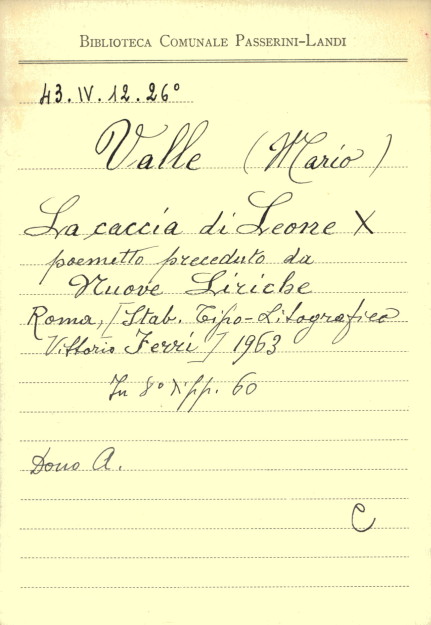 BIBLIOTECA COMUNALE PASSERINI-LANDI
43.IV.12.26°
Valle (Mario)
La caccia di Leone X
poemetto preceduto da
Nuove Liriche
Roma, [Stab. Tipo-Litografico
Vittorio Ferri] 1963
In 8° pp. 60
Dono A.
C